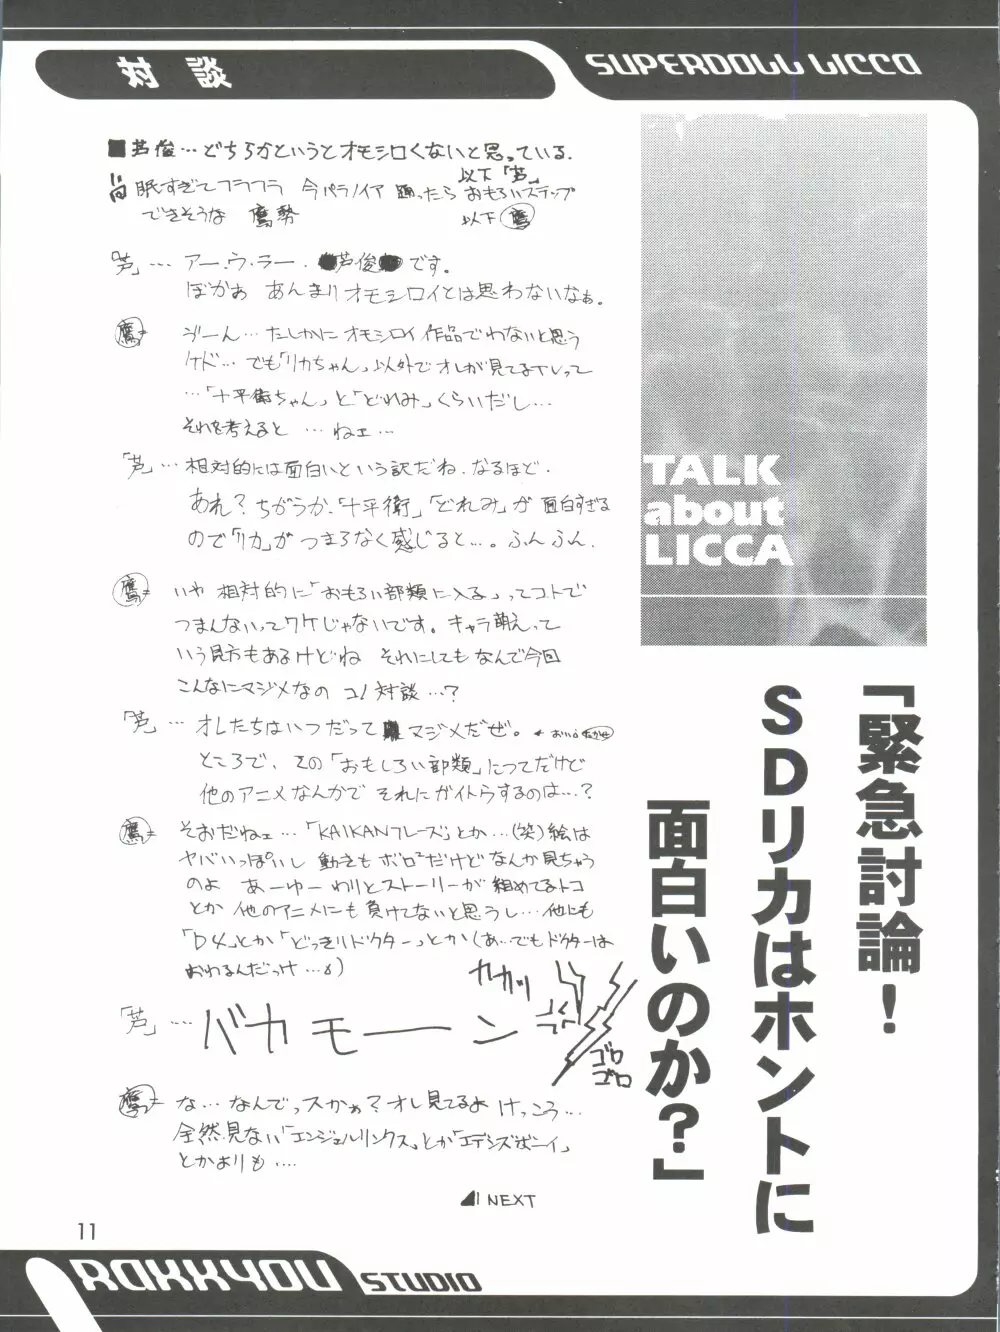 対談
SUPERDOLL LICCA
■芦俊…どちらかというとオモシロくないと思っている.
以下「芦」
眠すぎてフラフラ 今パラノイア 踊ったら おもろいステップ
できそうな 鷹勢 以下 鷹
「芦」… アー.ウ.ラー. 芦俊 です。
ぼかぁ あんまりオモシロイとは思わないなぁ。
鷹= ゔーん…たしかに オモシロイ作品でわないと思う
ケド… でも「リカちゃん」以外でオレが見てるTVって
…「十平衛ちゃん」と「どれみ」くらいだし…
それを考えると …ねェ…
「芦」… 相対的には面白いという訳だね.なるほど.
あれ?ちがうか.「十平衛」「どれみ」が 面白すぎる
ので「リカ」が つまらなく感じると…。ふんふん.
鷹= いや 相対的に「おもろい部類に入る」ってコトで
つまんないってワケじゃないです。キャラ萌えって
いう見方もあるけどね それにしても なんで今回
こんなにマジメなの コノ対談…?
「芦」… オレたちはいつだって マジメだぜ。
ところで、その「おもしろい部類」についてだけど
他のアニメなんかで それにガイトウするのは…?
鷹= そおだねェ…「KAIKANフレーズ」とか…(笑)絵は
ヤバいっぽいし 動きもボロ²だけど なんか見ちゃう
のよ あーゆー わりとストーリーが 組めてるトコ
とか 他のアニメにも 負けてないと思うし…他にも
「D4」とか「どっきりドクター」とか(あ…でもドクターは
おわるんだっけ…)
カカッ
「芦」… バカモーーン
ゴロ
ゴロ
鷹= な…なんでっスかぁ?オレ見てるよ けっこう…
全然見ない「エンジェルリンクス」とか「エデンズボーイ」
とかよりも….
NEXT
TALK
about
LICCA
「緊急討論!
SDリカはホントに
面白いのか?」
11
RAKKYOU STUDIO